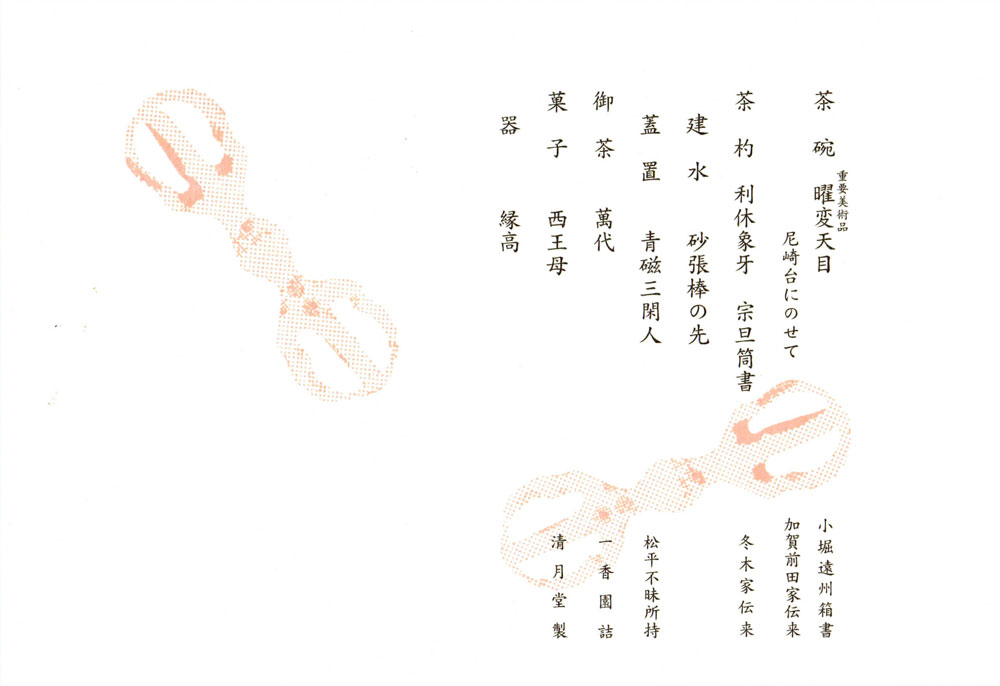 茶碗 曜変天目 小堀遠州箱書
重要美術品
尼崎台にのせて 加賀前田家伝来
茶杓 利休象牙 宗旦筒書 冬木家伝来
建水 砂張棒の先
蓋置 青磁三閑人 松平不昧所持
御茶 萬代 一香園詰
菓子 西王母 清月堂製
器 縁高